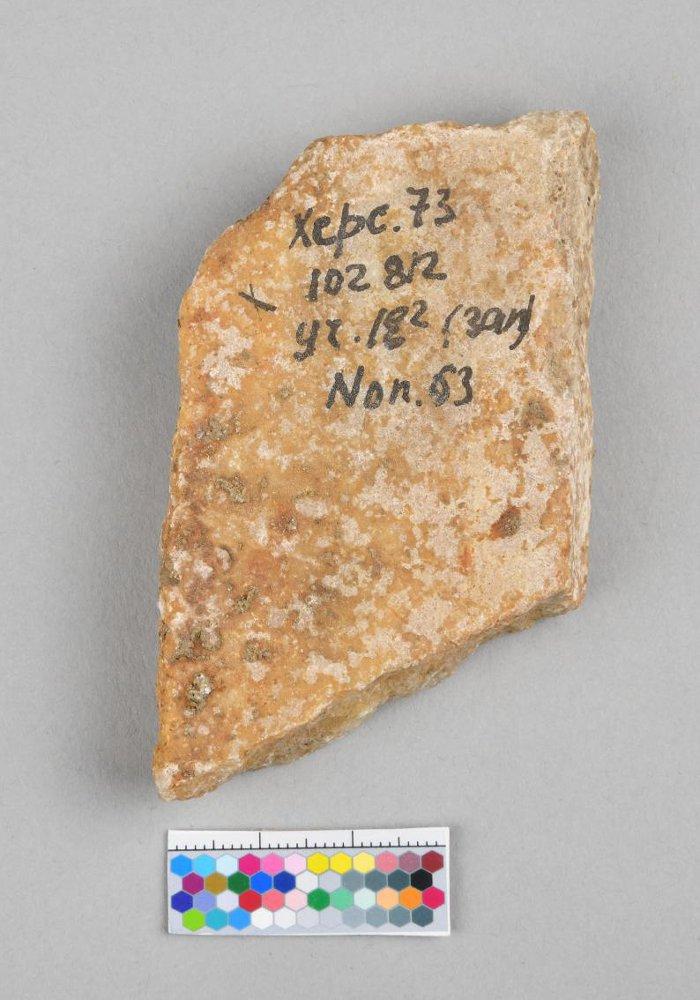 Херс. 73
х 102 812
уч. 1g² (зап)
Поп. 53